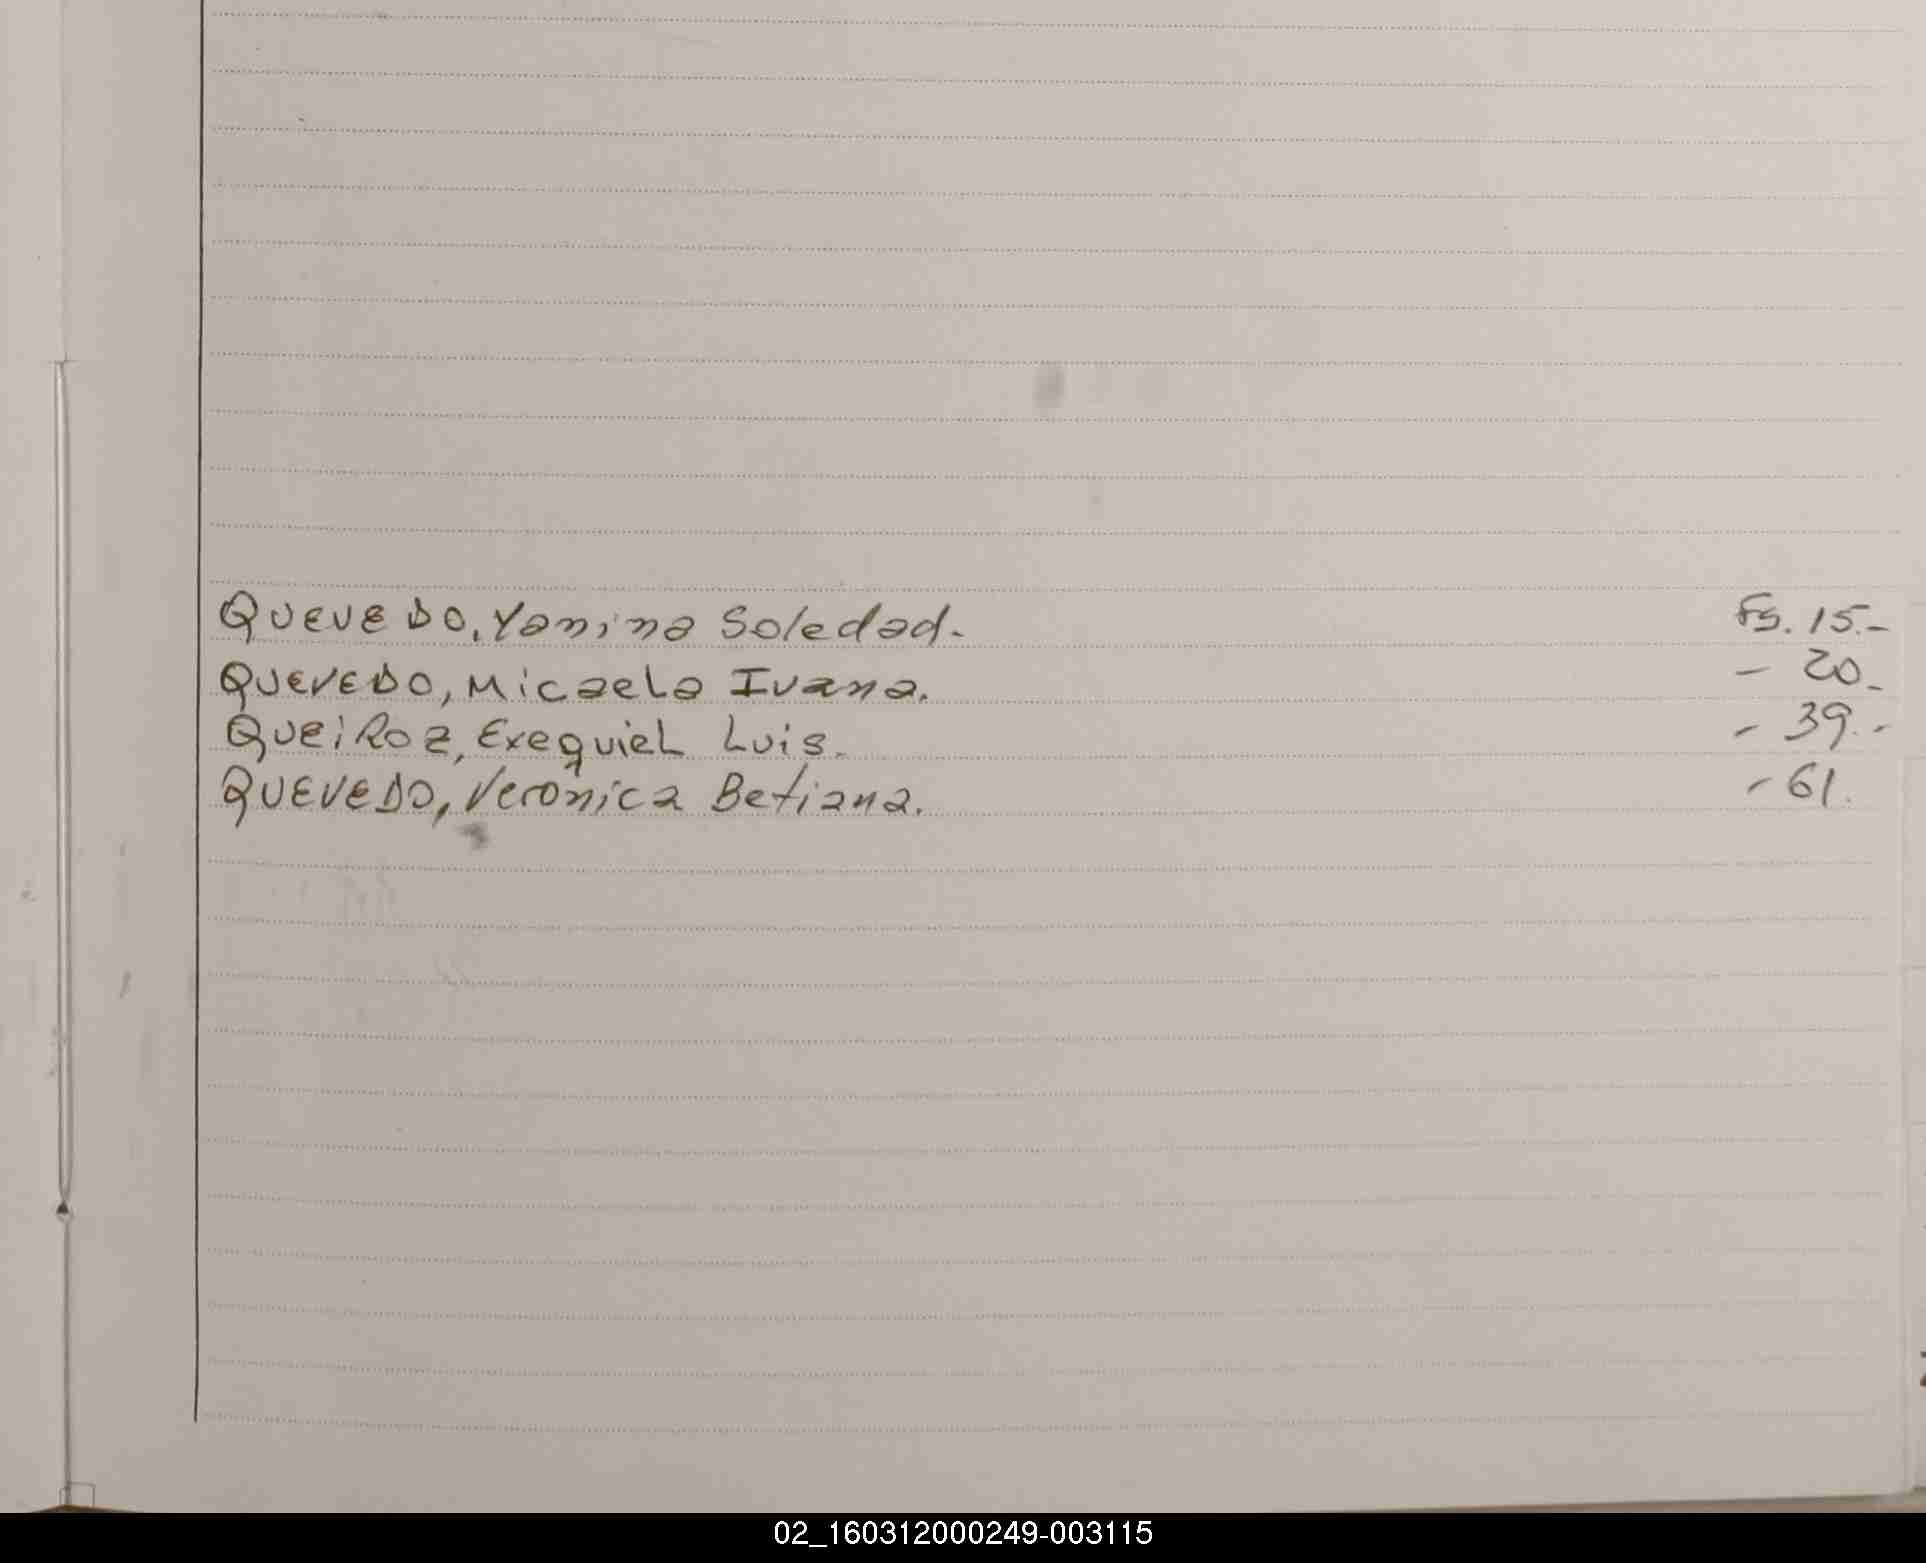 QUEVEDO, Yanina Soledad. Fs. 15.-
QUEVEDO, Micaela Ivana. - 20.
QueiRoz, Exequiel Luis. - 39.-
QUEVEDO, Veronica Betiana. - 61.
02_160312000249-003115